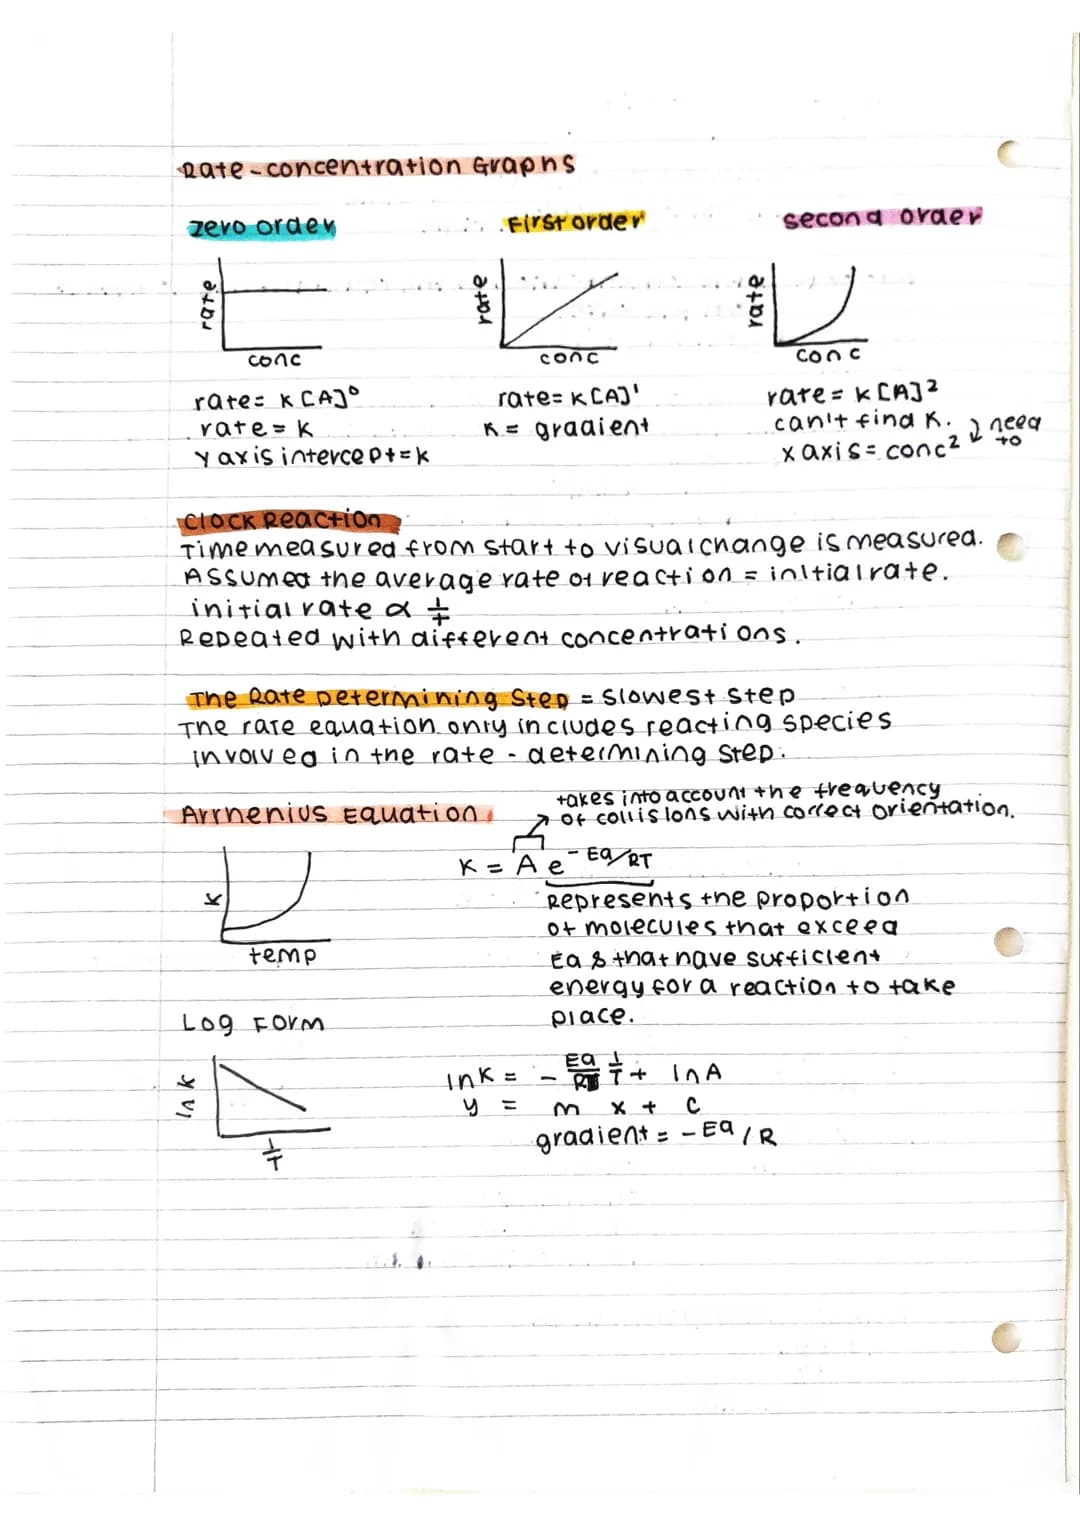 Rate-concentration Graphs
zero order
First order
second order
rate
conc
rate
conc
rate
conc
rate= K[A]⁰
rate = K
y axis intercept = K
rate= K[A]¹
K = gradient
rate = K[A]²
can't find K.
x axis = conc²
need to
Clock Reaction
Time measured from start to visual change is measured.
Assumed the average rate of reaction = initial rate.
initial rate ∝ 1/t
Repeated with different concentrations.
The Rate Determining Step = slowest step
The rate equation only includes reacting species
involved in the rate-determining step.
Arrhenius Equation
takes into account the frequency
of collisions with correct orientation.
K = A e^-Ea/RT
K
temp
Represents the proportion
of molecules that exceed
Ea & that have sufficient
energy for a reaction to take
place.
Log Form
ln k
1/T
lnK = - Ea/R 1/T + lnA
y = m x + c
gradient = -Ea/R